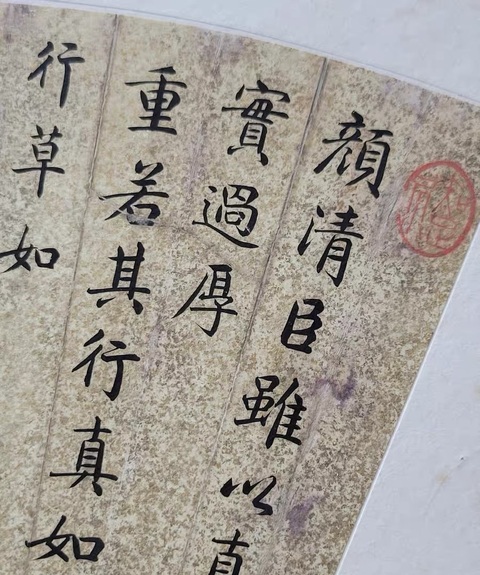 顔清臣雖以真
實過厚
重若其行真如
行草如